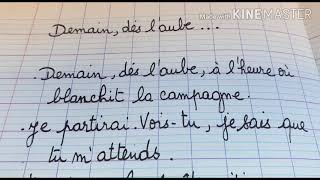 Made with KINEMASTER
Demain, dés l'aube...
. Demain, dés l'aube, à l'heure où
blanchit la campagne.
. Je partirai. Vois-tu, je sais que
tu m'attends.